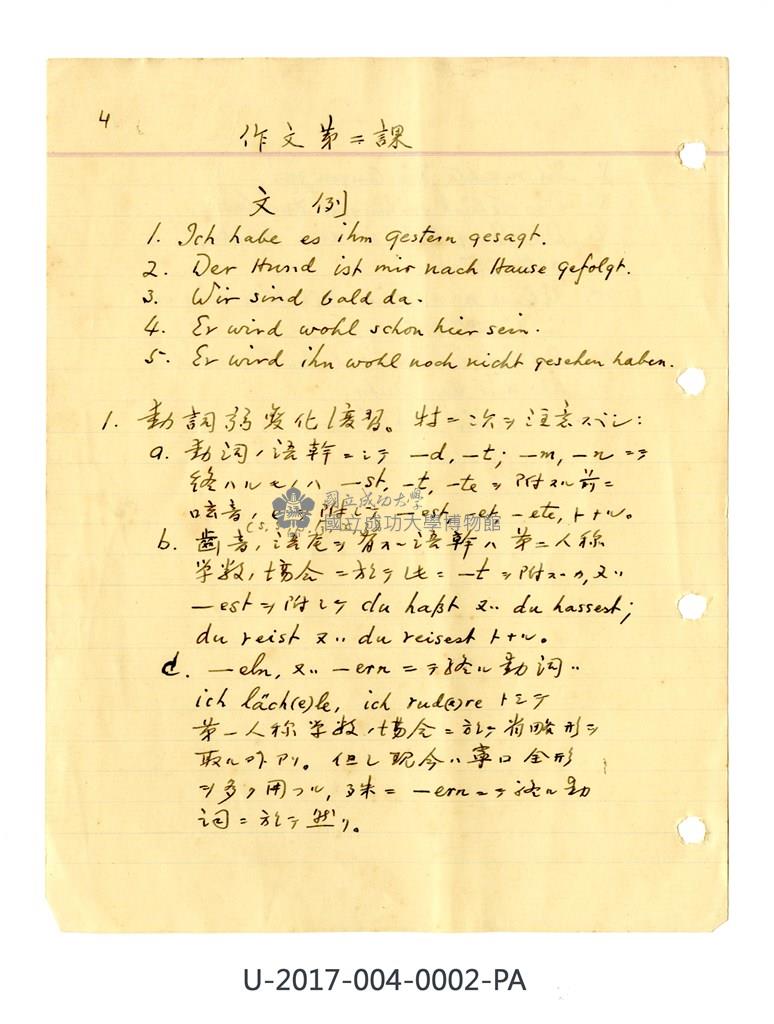 4
作文第二課
文例
1. Ich habe es ihm gestern gesagt.
2. Der Hund ist mir nach Hause gefolgt.
3. Wir sind bald da.
4. Er wird wohl schon hier sein.
5. Er wird ihn wohl noch nicht gesehen haben.
1. 動詞弱変化ノ復習。特ニ次ヲ注意スベシ:
a. 動詞ノ語幹ニシテ —d, —t; —m, —n ニテ
終ハルモノハ —st, —t, —te ヲ附スル前ニ
音, e ヲ附シテ —est, —et, —ete, トナル。
國立成功大學
國立成功大學博物館
b. 歯音ノ語尾ヲ有スル語幹ハ第二人称
単数ノ場合ニ於テ ニ —t ヲ附スルカ, 又ハ
—est ヲ附シテ du haßt 又ハ du hassest;
du reist 又ハ du reisest トナル。
c. —eln, 又ハ —ern ニテ終ル動詞ハ
ich läch(e)le, ich rud(e)re トシテ
第一人称単数ノ場合ニ於テ省略形ヲ
取ル事アリ。但シ現今ハ寧ロ全形
ヲ多ク用フル, 殊ニ —ern ニテ終ル動
詞ニ於テ然リ。
U-2017-004-0002-PA